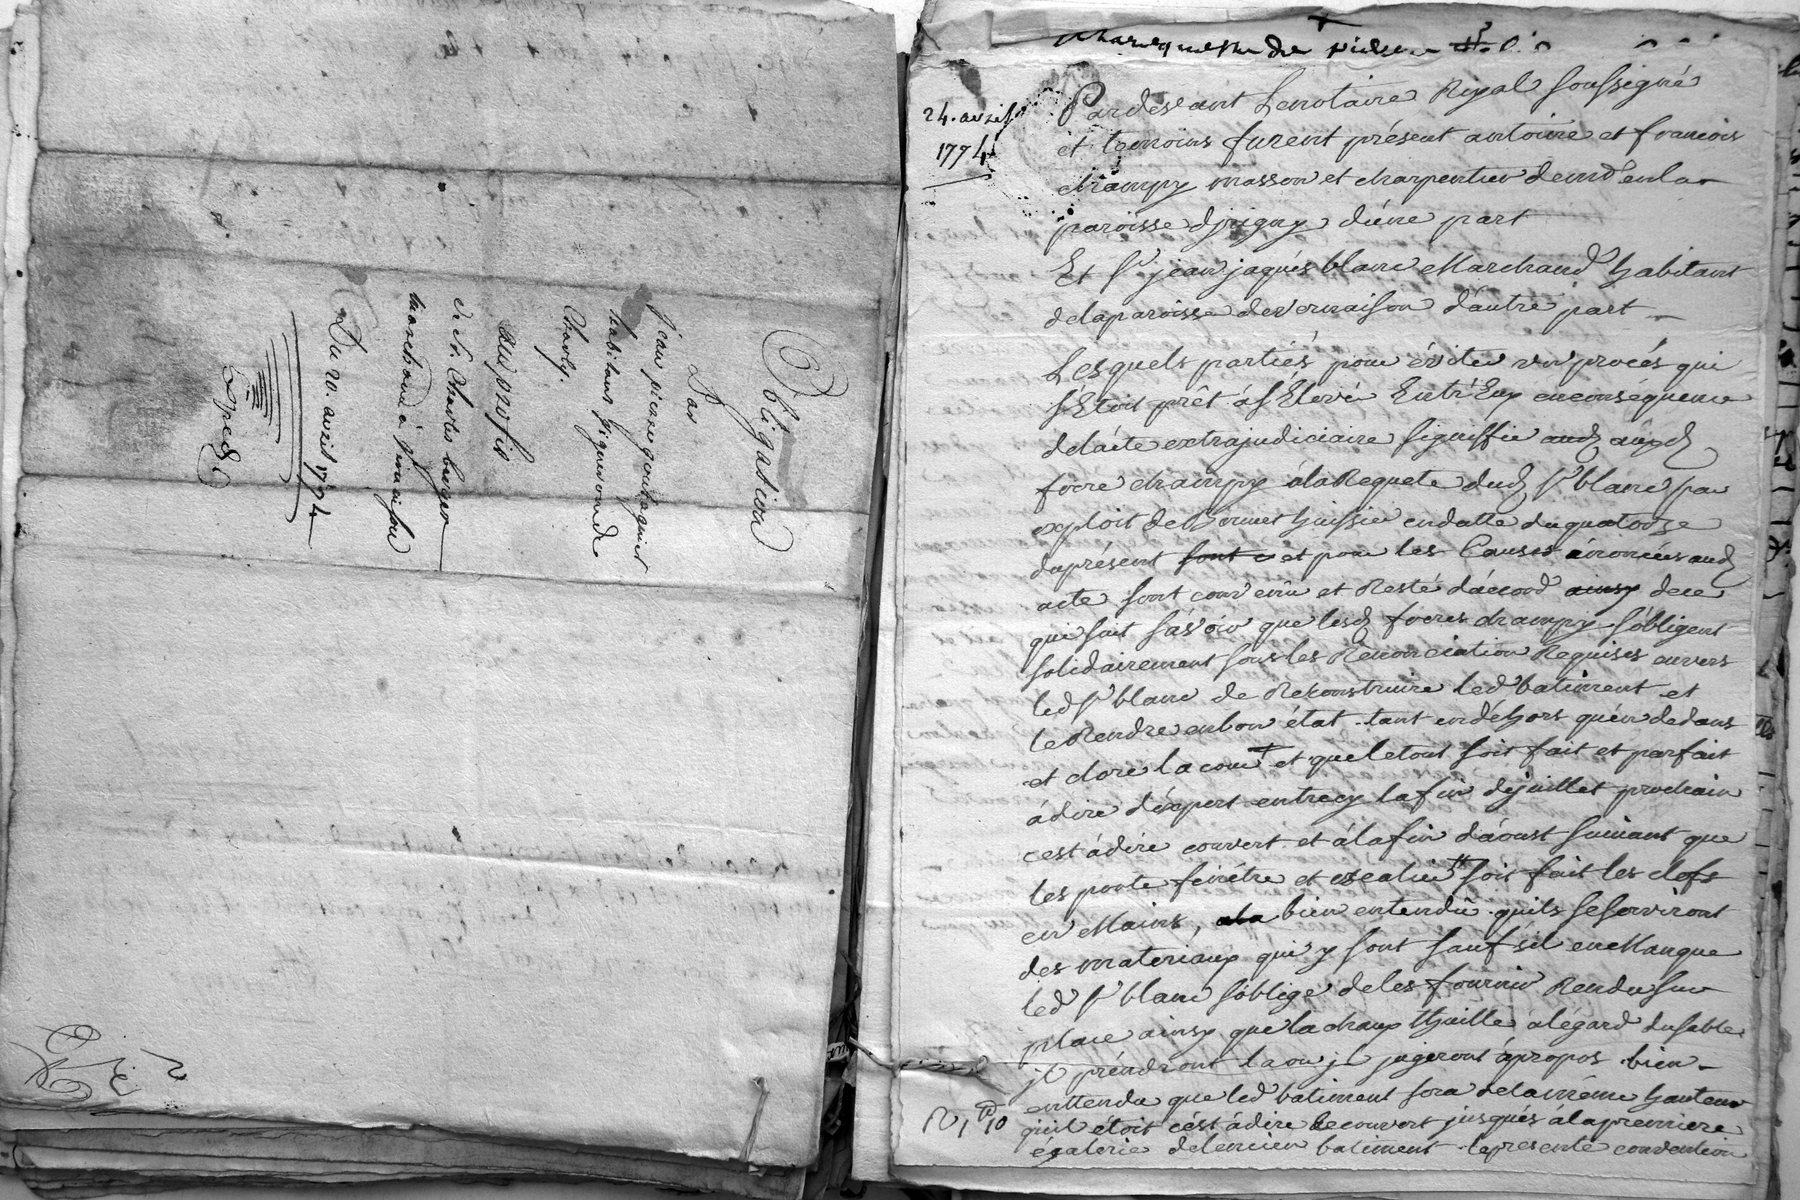 Obligation
Par
Jean pierre
habitant vigneron de
Charly.
Au profit
de Sr. Charles berger
marchand à Vernaison
Du 20. avril 1774
Exped.
24. avril
1774
Pardevant Le notaire Royal soussigné
et temoins furent présent antoine et francois
champy masson et charpentier demt en la
paroisse d'jrigny d'une part
Et Sr jean jaqués blanc Marchand habitant
de la paroisse de vernaison d'autre part
Lesquels partiés pour éviter un procés qui
s'Étoit prêt á s'Élever Entr'Eux en conséquence
de l'acte extrajudiciaire signiffié aud
frere champy á la Requete dud Sr blanc par
exploit de huissier en datte du quatorze
du présent et pour les Causes énoncées aud
acte sont convenu et Resté d'accord de ce
qui suit sávoir que lesd freres champy s'óbligent
solidairement sous les Renonciation Requises envers
led Sr blanc de Reconstruire led batiment et
le Rendre en bon état tant en déhors qu'én dedans
et clore la cour + et que le tout soit fait et parfait
á dire d'éxpert entre cy la fin de juillet prochain
c'est á dire couvert et á la fin d'áoust suivant que
les porte fenétre et escalier # soit fait les clefs
en Mains, bien entendû qu'ils se serviront
des materiaux qui y sont sauf s'il en Manque
led Sr blanc s'óblige de les fournir Rendu sur
place ainsy que la chaux á l'égard du sable
jl prendront la ou jl jugeront ápropos bien
enttendu que led batiment sera de la méme hauteur
qu'il étoit c'ést á dire Recouvert jusqués á la premiere
égalerie de l'encien batiment la presente convention